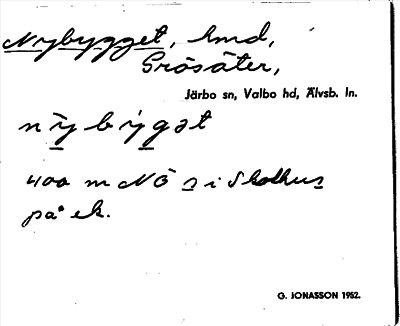 Nybygget, hmd,
Grösäter,
Järbo sn, Valbo hd, Älvsb. ln.
nybygət
400 m NÖ s i Skolhus
på ek.
G. JONASSON 1952.